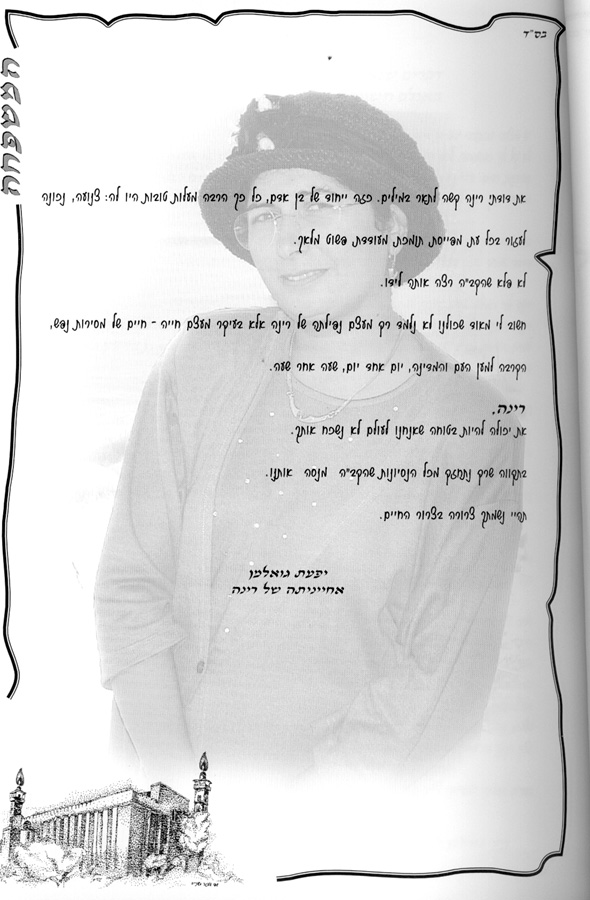 בס"ד
המשפחה
את דודתי רינה קשה לתאר במילים. כזה ייחוד של בן אדם, כל כך הרבה מעלות טובות היו לה: צנועה, נכונה
לעזור בכל עת מפייסת תומכת מעודדת פשוט מלאך.
לא פלא שהקב"ה רצה אותה לידו.
חשוב לי מאוד שכולנו לא נלמד רק מעצם נפילתה של רינה אלא בעיקר מעצם חייה - חיים של מסירות נפש,
הקרבה למען העם והמדינה, יום אחד יום, שעה אחר שעה.
רינה,
את יכולה להיות בטוחה שאנחנו לעולם לא נשכח אותך.
בתקווה שרק נתחזק מכל הנסיונות שהקב"ה מנסה אותנו.
תהיי נשמתך צרורה בצרור החיים.
יפעת גואלמן
אחייניתה של רינה